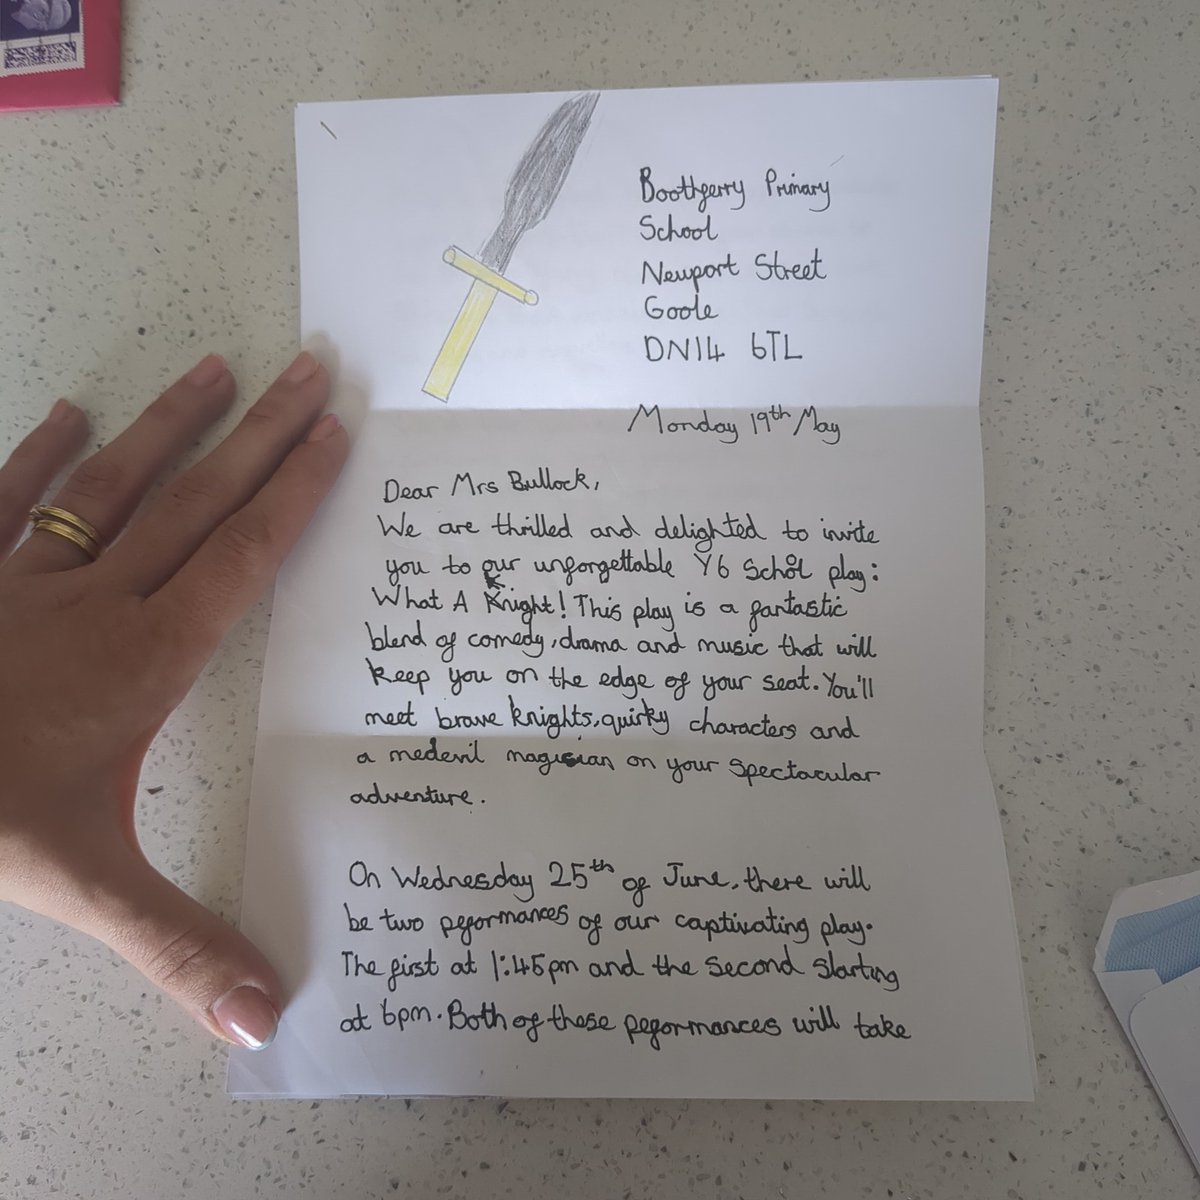 Boothferry Primary
School
Newport Street
Goole
DN14 6TL
Monday 19th May
Dear Mrs Bullock,
We are thrilled and delighted to invite
you to our unforgettable Y6 School play:
What A Knight! This play is a fantastic
blend of comedy, drama and music that will
keep you on the edge of your seat. You'll
meet brave knights, quirky characters and
a medevil magician on your spectacular
adventure.
On Wednesday 25th of June, there will
be two peformances of our captivating play.
The first at 1:45pm and the second starting
at 6pm. Both of these peformances will take